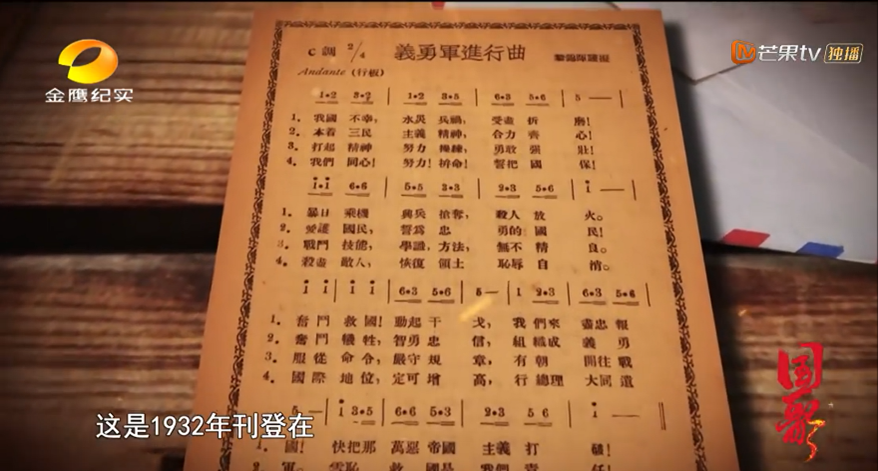 金鷹纪实
芒果tv 独播
C調 2/4
義勇軍進行曲
Andante (行板)
1•2 3•2 | 1•2 3•5 | 6•3 5•6 | 5 — |
1。我國 不幸, 水災 兵禍, 受盡 折 磨!
2。本着 三民 主義 精神, 合力 齊 心!
3。打起 精神 努力 操練, 勇敢 強 壯!
4。我們 同心! 努力! 拚命! 誓把 國 保!
i•i 6•6 | 5•5 3•3 | 2•3 5•6 | i — |
1。暴日 乘機 興兵 搶奪, 殺人 放 火。
2。愛護 國民, 誓爲 忠 勇的 國 民!
3。戰鬥 技能, 學識, 方法, 無不 精 良。
4。殺盡 敵人, 恢復 領土 恥辱 自 消。
i i | i i | 6•3 5•6 | 5— | 1 2•3 | 6•3 5•6 |
1。奮鬥 救國! 動起 干 戈, 我們來 盡忠 報
2。奮鬥 犧牲, 智勇 忠 信, 組織成 義 勇
3。服從 命令, 嚴守 規 章, 有朝 開往 戰
4。國際 地位, 定可 增 高, 行總理 大同 遺
5— | i 3•5 | 6•6 5•6 | 2•3 5 6 | i — |
1。國! 快把那 萬惡 帝國 主義 打 破!
國歌
这是1932年刊登在